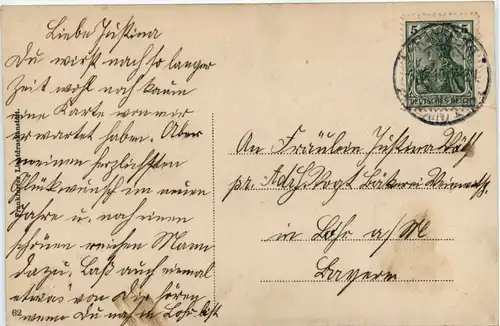 Liebe Justina
Du wirst nach so langer
Zeit wohl noch kaum
eine Karte von mir
erwartet haben. Aber
meinen herzlichsten
Glückwunsch im neuen
Jahre u. noch einen
schönen reichen Mann
dazu. Laß auch einmal
etwas von Dir hören
wenn Du noch in Lohr bist
An Fräulein Justina
pr. Adr. Vogt Bäckerei
in Lohr a/M
Bayern
5 5
DEUTSCHES REICH
62